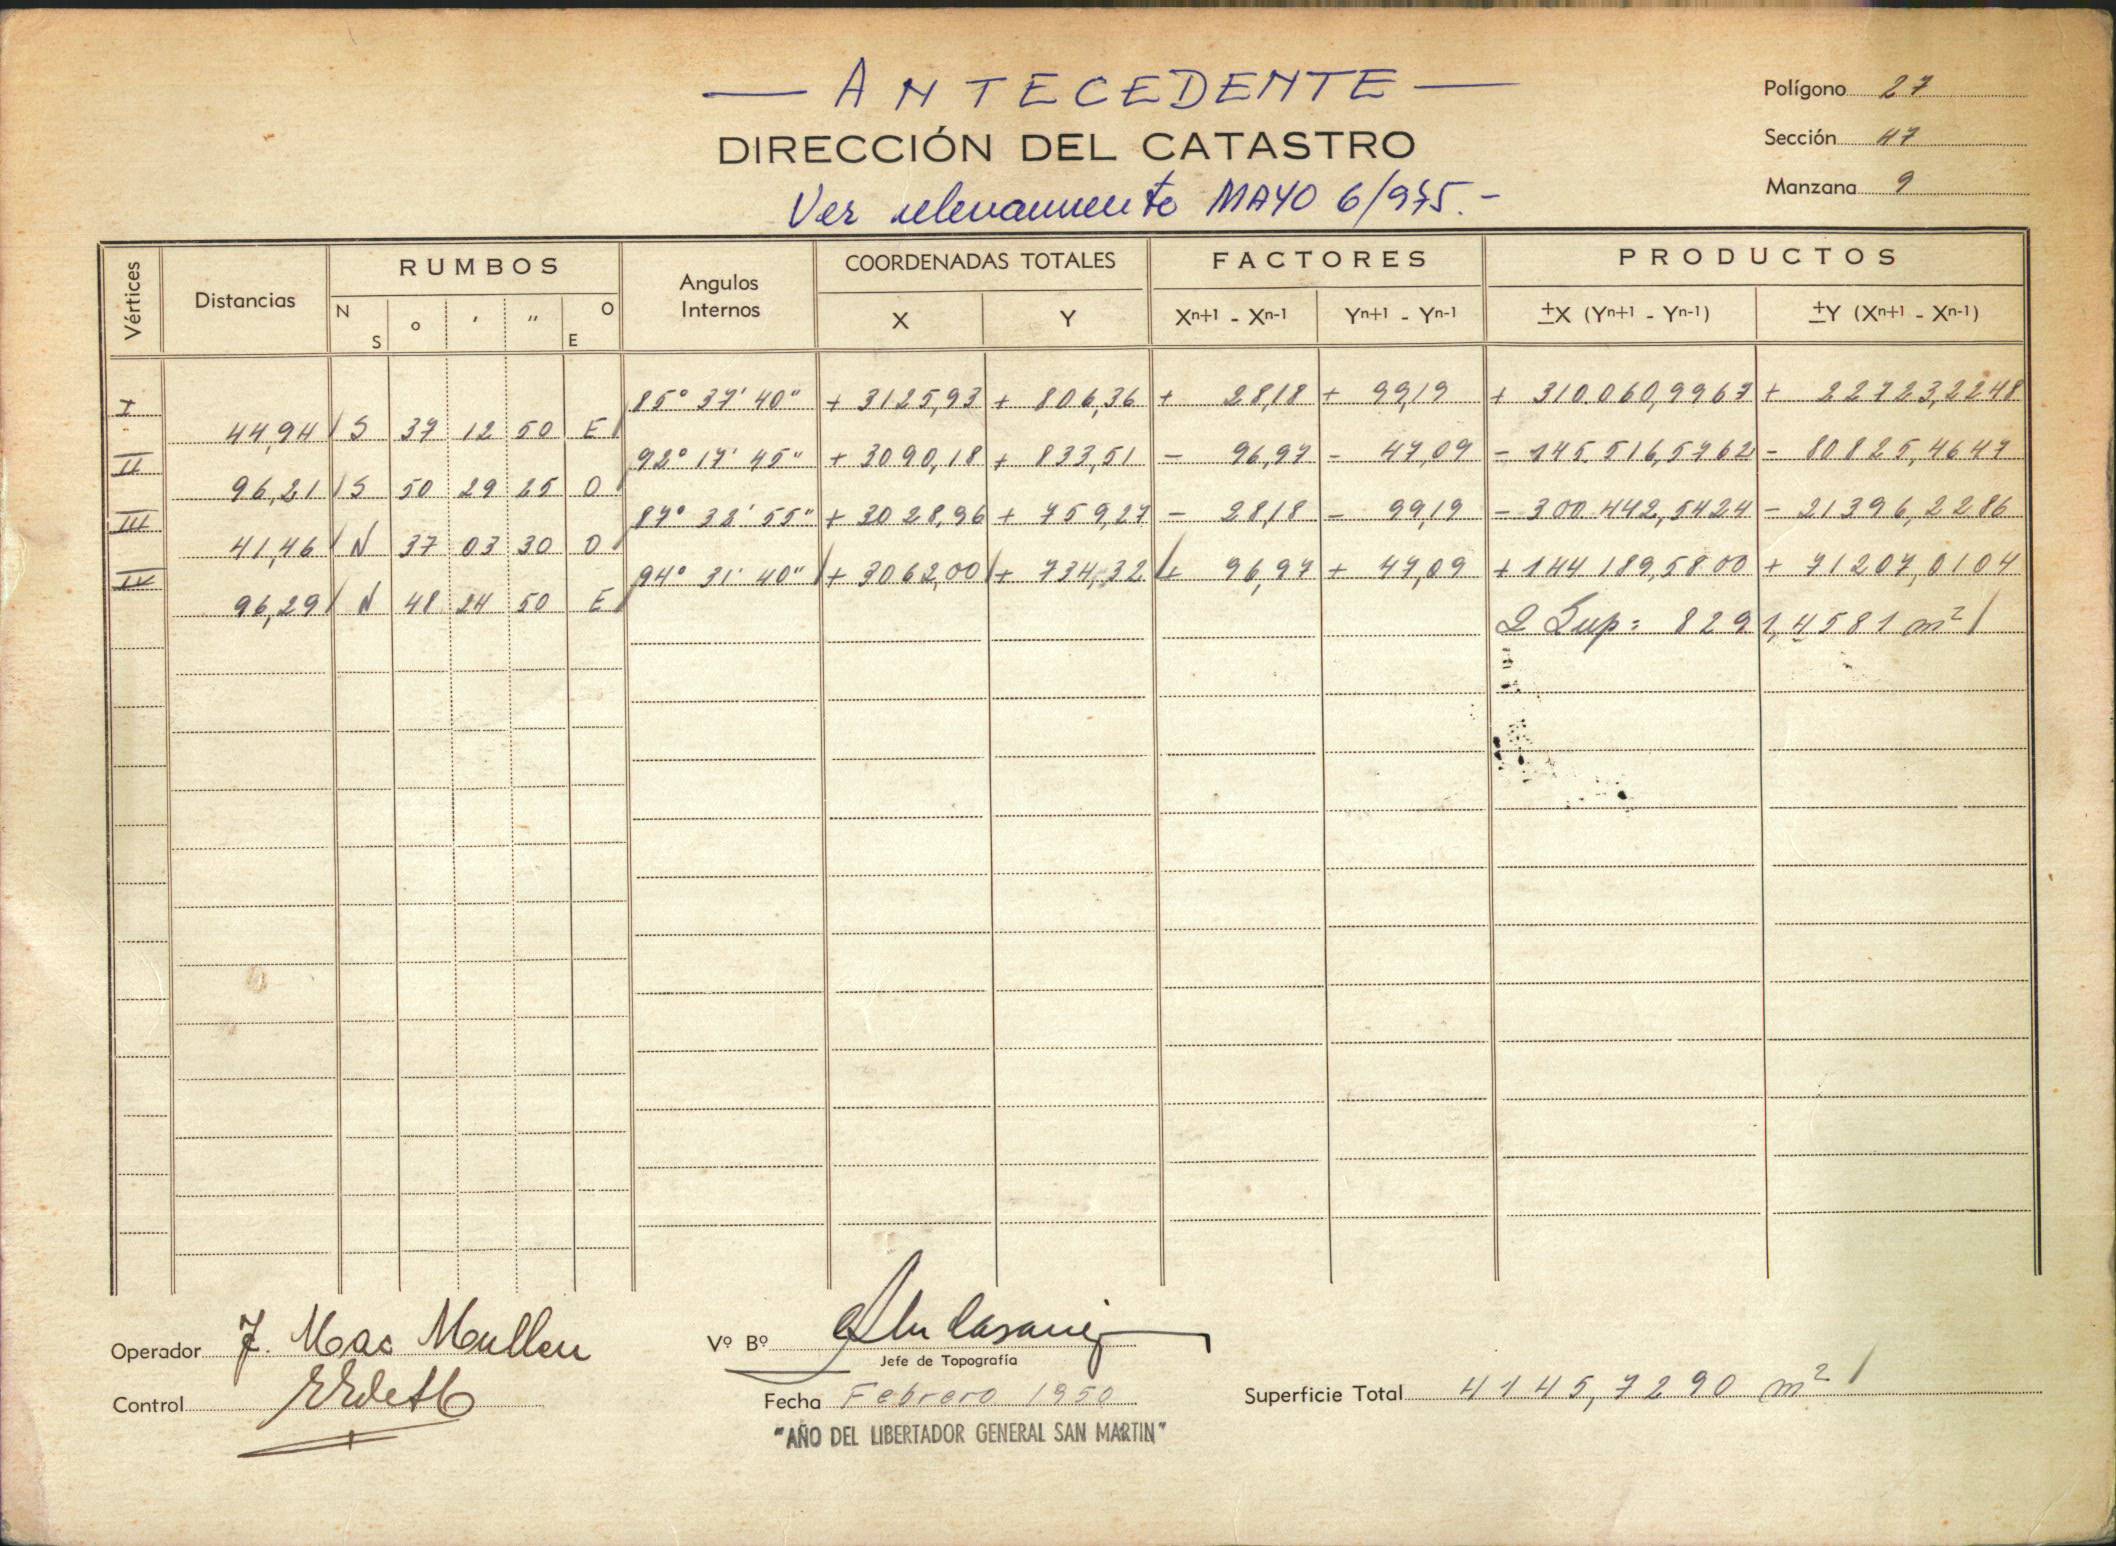 — ANTECEDENTE —
DIRECCIÓN DEL CATASTRO
Ver relevamiento MAYO 6/975.-
Polígono 27
Sección 47
Manzana 9
Vértices Distancias RUMBOS Angulos Internos COORDENADAS TOTALES FACTORES PRODUCTOS
N S ° ' " O E X Y Xⁿ⁺¹ - Xⁿ⁻¹ Yⁿ⁺¹ - Yⁿ⁻¹ ±X (Yⁿ⁺¹ - Yⁿ⁻¹) ±Y (Xⁿ⁺¹ - Xⁿ⁻¹)
I 85° 37' 40" + 3125,93 + 806,36 + 28,18 + 99,19 + 310.060,9967 + 22723,2248
44,94 S 37 12 50 E
II 92° 17' 45" + 3090,18 + 833,51 - 96,97 - 47,09 - 145.516,5762 - 80825,4647
96,21 S 50 29 25 O
III 87° 32' 55" + 3028,96 + 759,27 - 28,18 - 99,19 - 300.442,5424 - 21396,2286
41,46 N 37 03 30 O
IV 94° 31' 40" + 3062,00 + 734,32 + 96,97 + 47,09 + 144189,5800 + 71207,0104
96,29 N 48 24 50 E
2 Sup: 8291,4581 m²
Operador J. Mac Mullen
Vº Bº
Jefe de Topografía
Control
Fecha Febrero 1950
Superficie Total 4145,7290 m²
"AÑO DEL LIBERTADOR GENERAL SAN MARTIN"